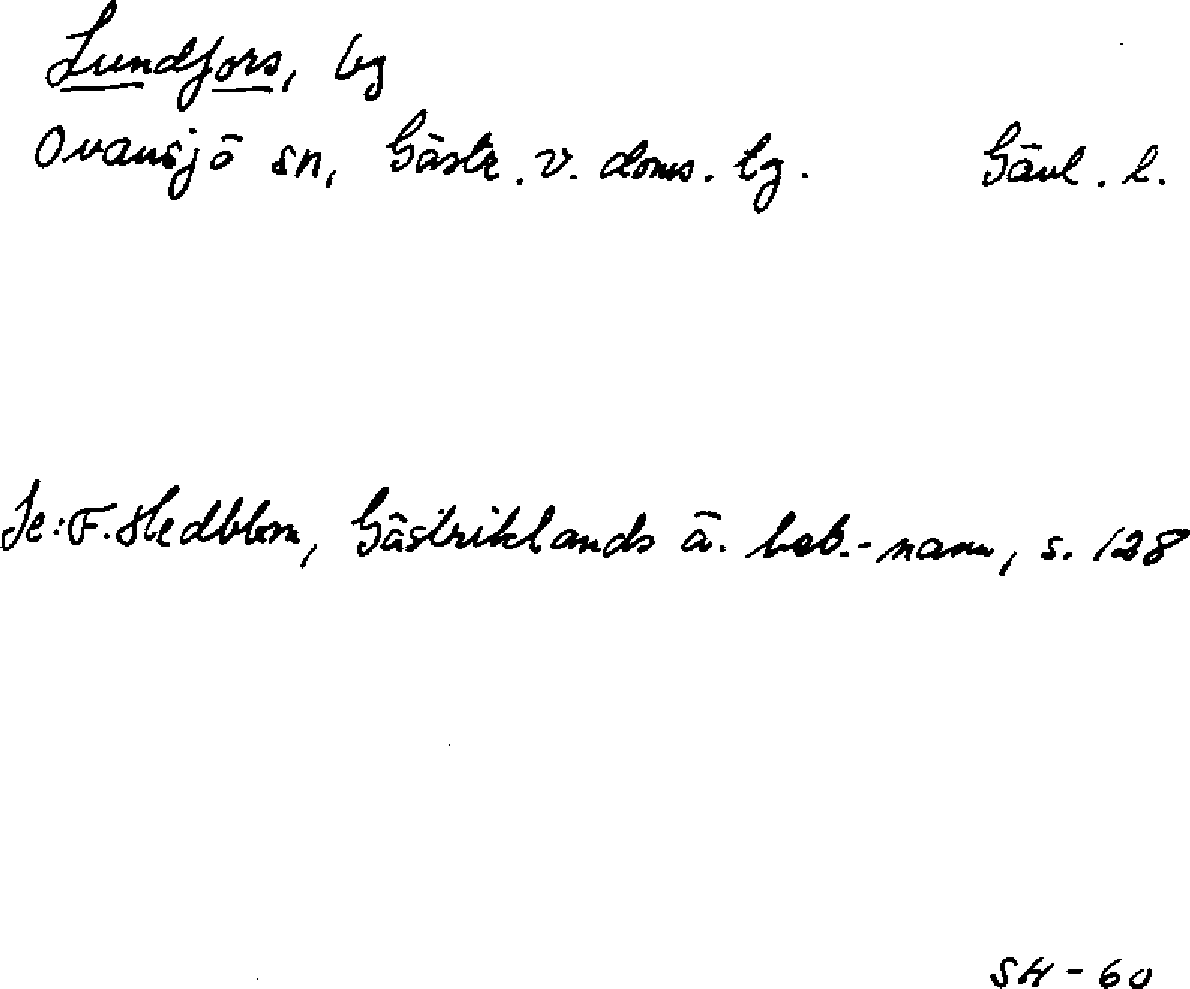 Lundfors, by
Ovansjö sn, Gästr. v. doms. tg. Gävl. l.
Se: F. Hedblom, Gästriklands ä. beb.-namn, s. 128
SH - 60